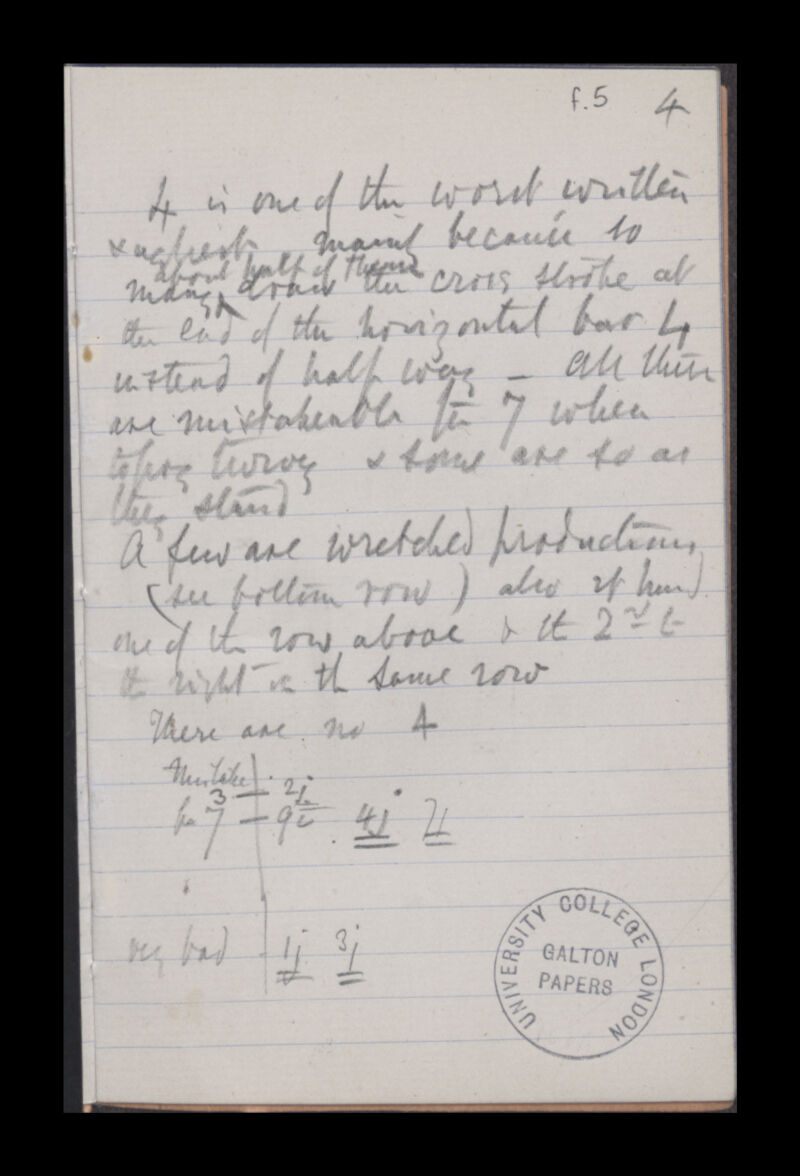 f.5 4
4 is one of the worst written
& ugliest mainly because so
about half of them
many draw the cross stroke at
the end of the horizontal bar 4
instead of half way – All these
are mistakeable for 7 when
& some are so as
they stand
A few are wretched productions
(see bottom row) also
one of the row above & the 2nd to
the right in the same row
There are no 4
Mistake
3 — 2j
for 7 — 9i 4j
very bad 1j 3j
UNIVERSITY COLLEGE LONDON
GALTON
PAPERS